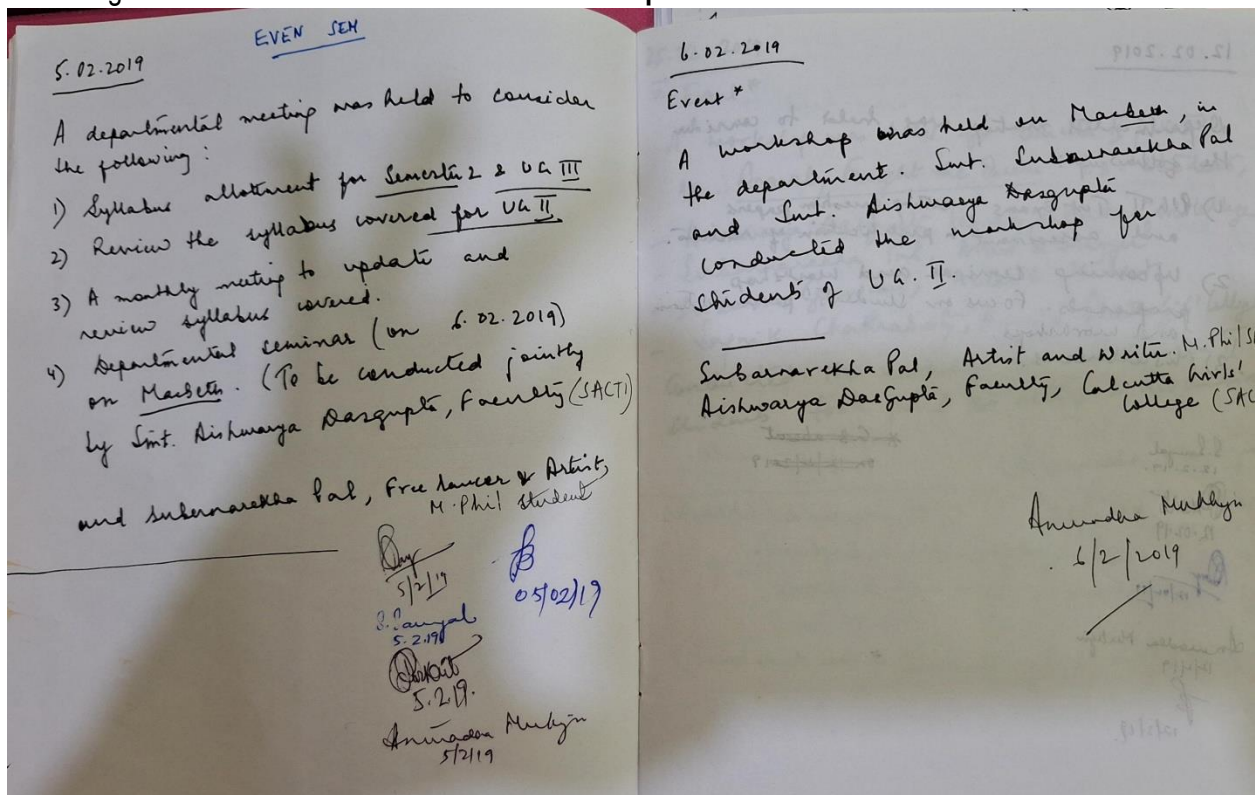 EVEN SEM
5.02.2019
A departmental meeting was held to consider
the following:
1) Syllabus allotment for Semester 2 & UG III
2) Review the syllabus covered for UG II.
3) A monthly meeting to update and
review syllabus covered.
4) Departmental seminar (on 6.02.2019)
on Macbeth. (To be conducted jointly
by Smt. Aishwarya Dasgupta, Faculty (SACT)
and Subarnarekha Pal, Free lancer & Artist,
M.Phil student
5/2/19
05/02/19
S. Sanyal
5.2.19
5.2.19.
Anuradha Mukhyn
5/2/19
6.02.2019
Event *
A workshop was held on Macbeth, in
the department. Smt. Subarnarekha Pal
and Smt. Aishwarya Dasgupta
conducted the workshop for
students of UG. II.
Subarnarekha Pal, Artist and Writer. M.Phil
Aishwarya DasGupta, Faculty, Calcutta Girls'
College (SAC
Anuradha Mukhyn
6/2/2019
12.02.2019